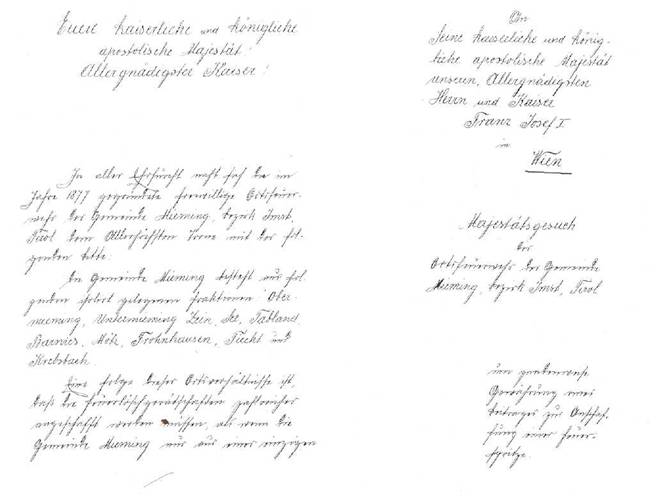 Euere kaiserliche und königliche
apostolische Majestät!
Allergnädigster Kaiser!
In aller Ehrfurcht naht sich die im
Jahre 1877 gegründete freiwillige Ortsfeuer-
wehr der Gemeinde Mieming, bezirk Imst,
Tirol dem Allerhöchsten Trone mit der fol-
genden bitte.
Die Gemeinde Mieming besteht aus fol-
genden gelegenen Fraktionen Ober-
mieming, Untermieming Zein, See, Tabland
Barwies, Mötz, Frohnhausen, Fiecht und
Krebsbach.
Eine folge dieser Ortsverhältnisse ist,
daß die feuerlöschgerätschaften zahlreicher
angeschafft werden müssen, als wenn die
Gemeinde Mieming nur aus einer einzigen
An
Seine kaiserliche und könig-
liche apostolische Majestät
unseren, Allergnädigsten
Herrn und Kaiser
Franz Josef I.
in
Wien
Majestätsgesuch
der
Ortsfeuerwehr der Gemeinde
Mieming, bezirk Imst, Tirol
um gnadenweise
Gewährung eines
betrages zur Anschaf-
fung einer feuer-
spritze.